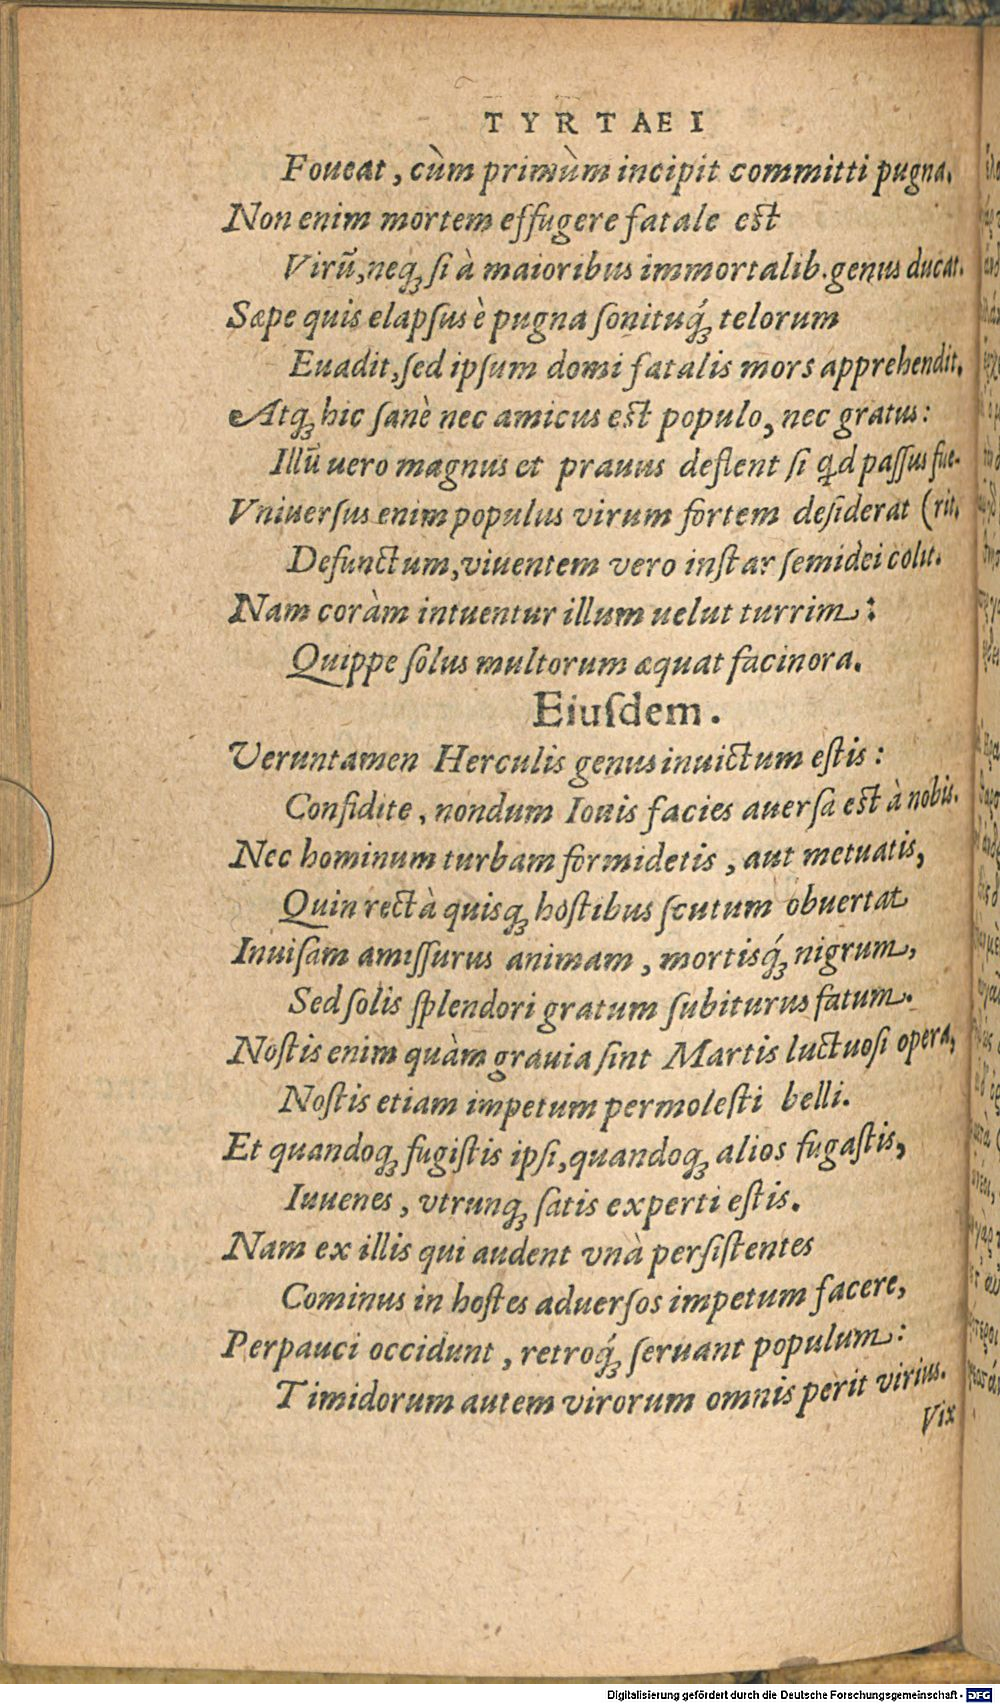 TYRTAEI
Foueat, cùm primùm incipit committi pugna.
Non enim mortem effugere fatale est
Virũ, neqꝫ si à maioribus immortalib. genus ducat.
Sæpe quis elapsus è pugna sonituqꝫ́ telorum
Euadit, sed ipsum domi fatalis mors apprehendit.
Atqꝫ hic sanè nec amicus est populo, nec gratus:
Illũ uero magnus et prauus deflent si qd passus fue-
Vniuersus enim populus virum fortem desiderat (rit.
Defunctum, viuentem vero instar semidei colit.
Nam coràm intuentur illum uelut turrim:
Quippe solus multorum æquat facinora.
Eiusdem.
Veruntamen Herculis genus inuictum estis:
Confidite, nondum Iouis facies auersa est à nobis.
Nec hominum turbam formidetis, aut metuatis,
Quin rectà quisqꝫ hostibus scutum obuertat
Inuisam amissurus animam, mortisqꝫ́ nigrum,
Sed solis splendori gratum subiturus fatum.
Nostis enim quàm grauia sint Martis luctuosi opera,
Nostis etiam impetum permolesti belli.
Et quandoqꝫ fugistis ipsi, quandoqꝫ alios fugastis,
Iuuenes, vtrunqꝫ satis experti estis.
Nam ex illis qui audent vnà persistentes
Cominus in hostes aduersos impetum facere,
Perpauci occidunt, retroqꝫ́ seruant populum:
Timidorum autem virorum omnis perit virtus.
Vix
Digitalisierung gefördert durch die Deutsche Forschungsgemeinschaft - DFG